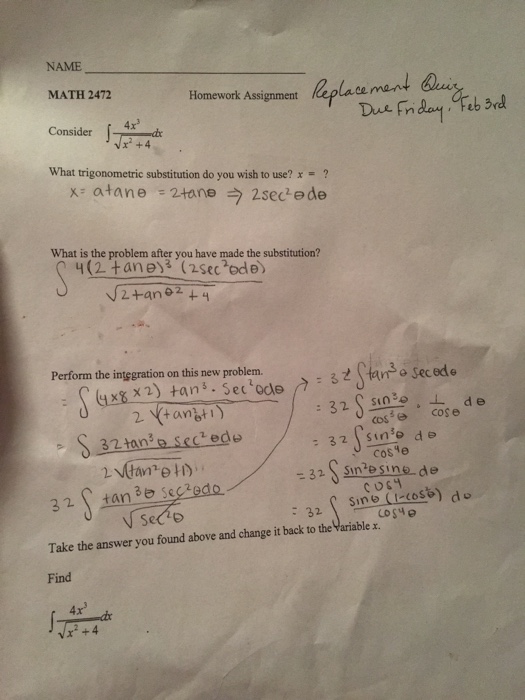 NAME
MATH 2472 Homework Assignment Replacement Quiz
Due Friday, Feb 3rd
Consider ∫ 4x³/√(x² + 4) dx
What trigonometric substitution do you wish to use? x = ?
x = a tanθ = 2tanθ ⇒ 2sec²θdθ
What is the problem after you have made the substitution?
∫ 4(2 tanθ)³ (2sec²θdθ) / √(2tanθ² + 4)
Perform the integration on this new problem.
= ∫ (4×8×2) tan³ · sec²θdθ / 2√(tan²θ+1)
= ∫ 32tan³θ sec²θdθ / 2√(tan²θ+1)
32 ∫ tan³θ sec²θdθ / √sec²θ
= 32 ∫ tan³θ secθdθ
= 32 ∫ sin³θ/cos³θ · 1/cosθ dθ
= 32 ∫ sin³θ/cos⁴θ dθ
= 32 ∫ sin²θ sinθ dθ / cos4
= 32 ∫ sinθ (1-cos²θ) dθ / cos⁴θ
Take the answer you found above and change it back to the variable x.
Find
∫ 4x³/√(x² + 4) dx